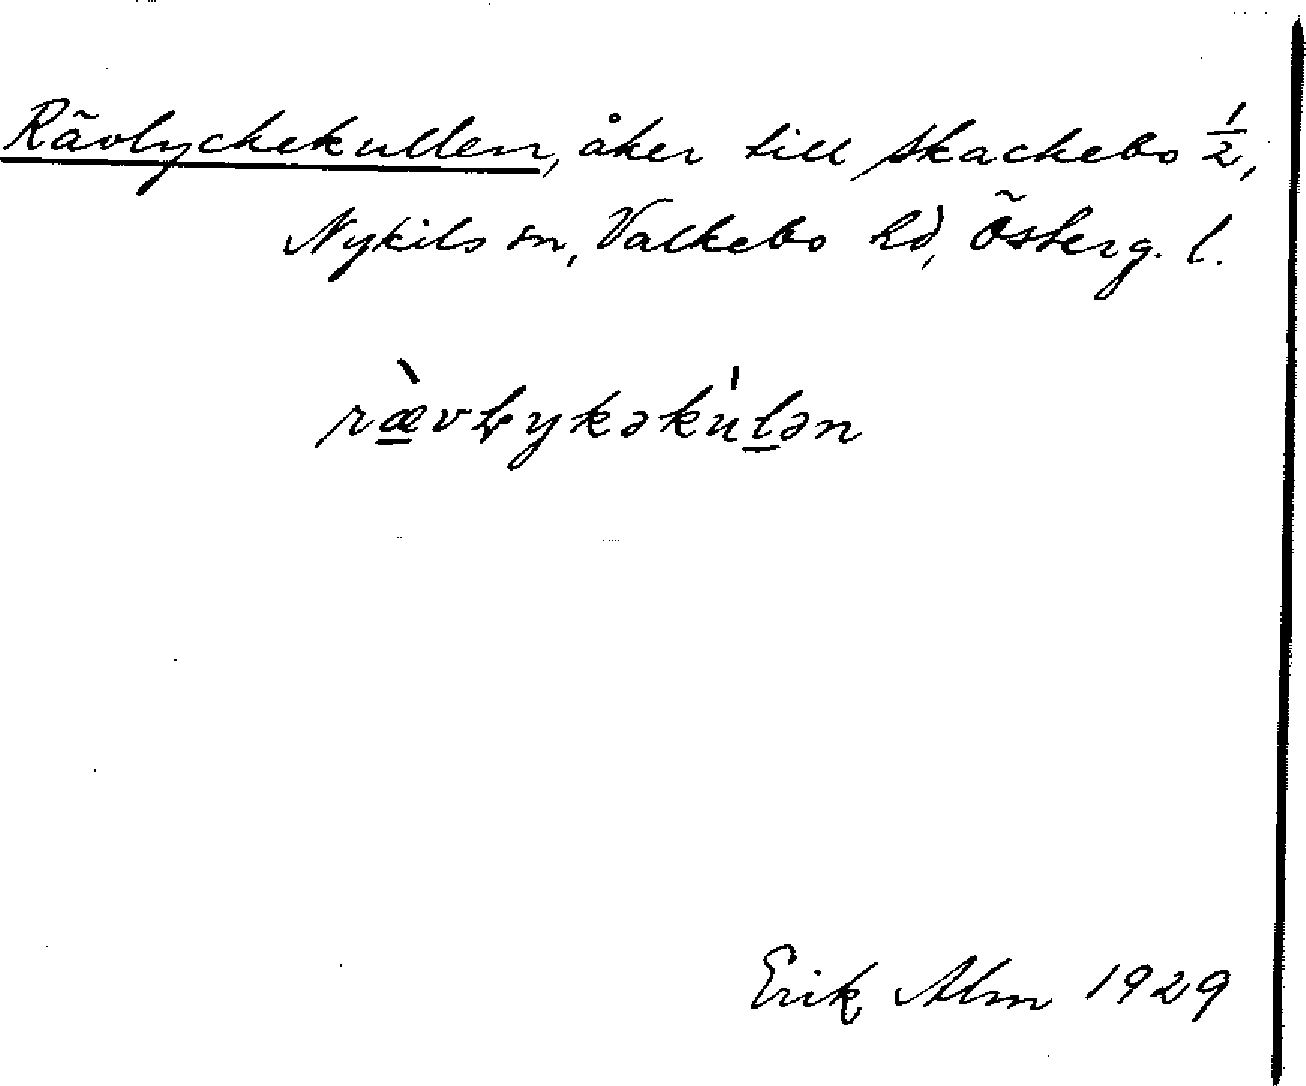 Rävlyckekullen, åker till Skackebo ½,
Nykils sn, Valkebo hd, Österg. l.
ræ̀vlykəku̍lən
Erik Alm 1929